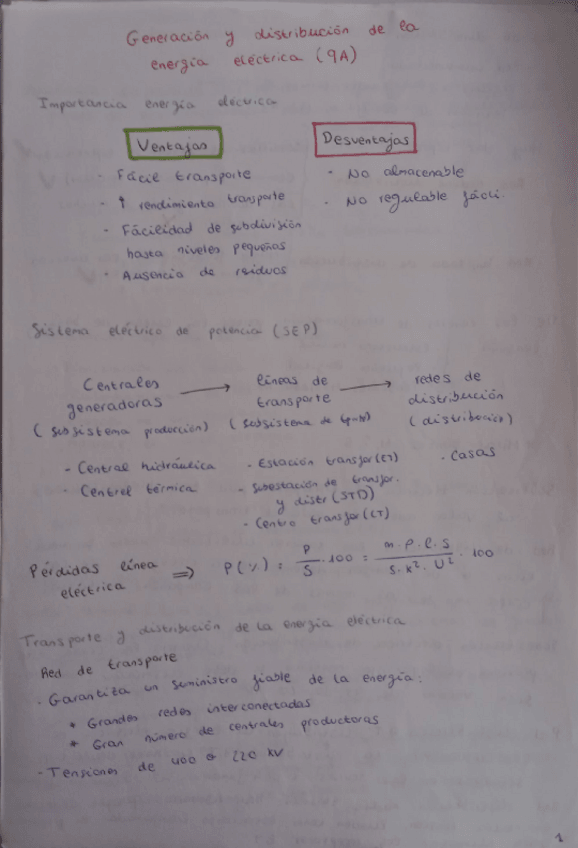 Generación y distribución de la
energía eléctrica (9A)
Importancia energía eléctrica
Ventajas
Desventajas
- Fácil transporte
- ↑ rendimiento transporte
- Fácilidad de subdivisión
hasta niveles pequeños
- Ausencia de residuos
- No almacenable
- No regulable fácil.
Sistema eléctrico de potencia (SEP)
Centrales
generadoras
(subsistema producción)
- Central hidráulica
- Central térmica
→ líneas de
transporte
(subsistema de
- Estación transfor (ET)
- Subestación de transfor.
y distr (STD)
- Centro transfor (CT)
→ redes de
distribución
(distribución)
- Casas
Pérdidas línea
eléctrica
⇒ P(%) = P/S · 100 = m·P·l·S / S·K²·U² · 100
Transporte y distribución de la energía eléctrica
Red de transporte
- Garantiza un suministro fiable de la energía:
* Grandes redes interconectadas
* Gran número de centrales productoras
- Tensiones de 400 o 220 KV
1